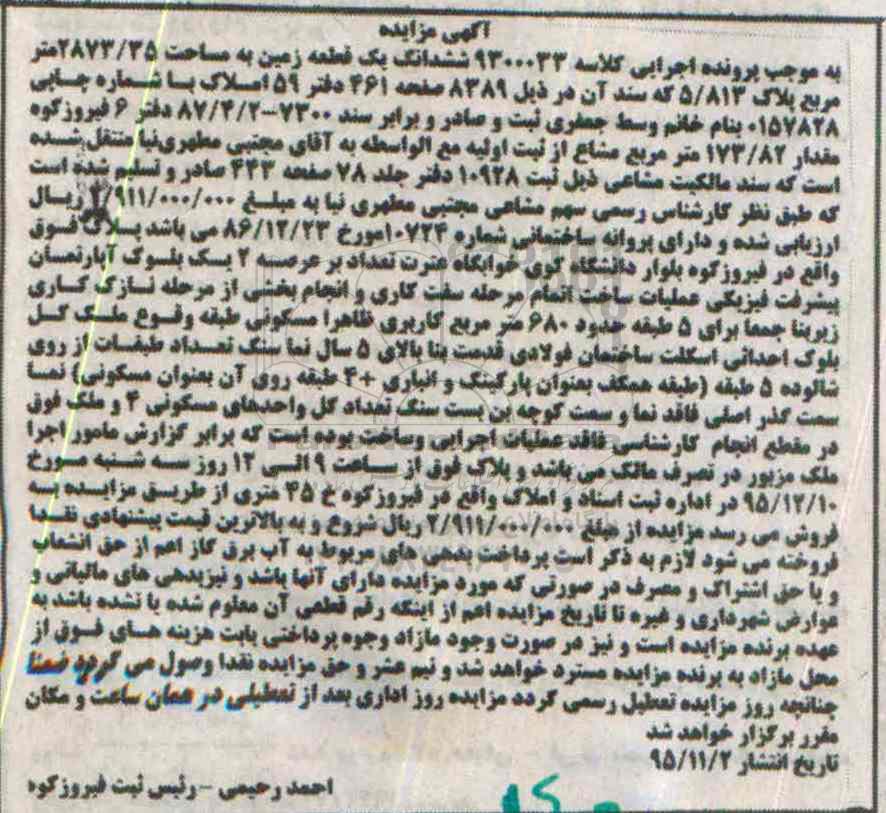 آگهی مزایده
به موجب پرونده اجرایی کلاسه ۹۳۰۰۰۳۳ ششدانگ یک قطعه زمین به مساحت ۲۸۷۳/۳۵متر
مربع پلاک ۵/۸۱۳ که سند آن در ذیل ۸۳۸۹ صفحه ۴۶۱ دفتر ۵۹ املاک با شماره چاپی
۰۱۵۷۸۲۸ بنام خانم وسط جعفری ثبت و صادر و برابر سند ۷۳۰۰-۸۷/۴/۲ دفتر ۶ فیروزکوه
مقدار ۱۷۳/۸۲ متر مربع مشاع از ثبت اولیه مع الواسطه به آقای مجتبی مطهری‌نیا منتقل شده
است که سند مالکیت مشاعی ذیل ثبت ۱۰۹۲۸ دفتر جلد ۷۸ صفحه ۴۴۳ صادر و تسلیم شده است
که طبق نظر کارشناس رسمی سهم مشاعی مجتبی مطهری نیا به مبلغ ۲/۹۱۱/۰۰۰/۰۰۰ ریال
ارزیابی شده و دارای پروانه ساختمانی شماره ۱۰۷۲۴مورخ ۸۶/۱۲/۲۳ می باشد پلاک فوق
واقع در فیروزکوه بلوار دانشگاه کوی خوابگاه عترت تعداد بر عرصه ۲ یک بلوک آپارتمان
پیشرفت فیزیکی عملیات ساخت اتمام مرحله سفت کاری و انجام بخشی از مرحله نازک کاری
زیربنا جمعا برای ۵ طبقه حدود ۶۸۰ متر مربع کاربری ظاهرا مسکونی طبقه وقوع ملک کل
بلوک احداثی اسکلت ساختمان فولادی قدمت بنا بالای ۵ سال نما سنگ تعداد طبقات از روی
شالوده ۵ طبقه (طبقه همکف بعنوان پارکینگ و انباری +۴ طبقه روی آن بعنوان مسکونی) نما
سمت گذر اصلی فاقد نما و سمت کوچه بن بست سنگ تعداد کل واحدهای مسکونی ۴ و ملک فوق
در مقطع انجام کارشناسی فاقد عملیات اجرایی وساخت بوده است که برابر گزارش مامور اجرا
ملک مزبور در تصرف مالک می باشد و پلاک فوق از ساعت ۹ الی ۱۲ روز سه شنبه مورخ
۹۵/۱۲/۱۰ در اداره ثبت اسناد و املاک واقع در فیروزکوه خ ۴۵ متری از طریق مزایده به
فروش می رسد مزایده از مبلغ ۲/۹۱۱/۰۰۰/۰۰۰ ریال شروع و به بالاترین قیمت پیشنهادی نقدا
فروخته می شود لازم به ذکر است پرداخت بدهی های مربوط به آب برق گاز اعم از حق انشعاب
و یا حق اشتراک و مصرف در صورتی که مورد مزایده دارای آنها باشد و نیزبدهی های مالیاتی و
عوارض شهرداری و غیره تا تاریخ مزایده اعم از اینکه رقم قطعی آن معلوم شده یا نشده باشد به
عهده برنده مزایده است و نیز در صورت وجود مازاد وجوه پرداختی بابت هزینه های فوق از
محل مازاد به برنده مزایده مسترد خواهد شد و نیم عشر و حق مزایده نقدا وصول می گردد ضمنا
چنانچه روز مزایده تعطیل رسمی گردد مزایده روز اداری بعد از تعطیلی در همان ساعت و مکان
مقرر برگزار خواهد شد
تاریخ انتشار ۹۵/۱۱/۲
احمد رحیمی -رئیس ثبت فیروزکوه